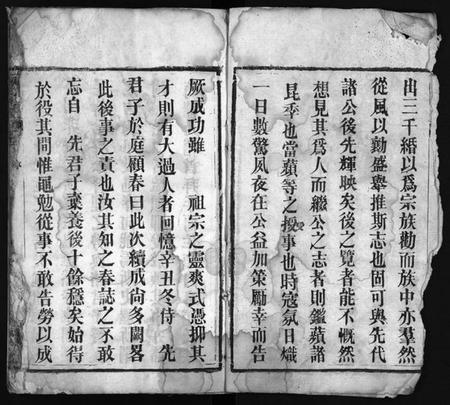 出三千緡以爲宗族勸而族中亦羣然
從風以勷盛舉推斯志也固可與先代
諸公後先輝映矣後之覽者能不慨然
想見其爲人而繼公之志者則鑑蘋諸
昆季也當蘋等之授事也時寇氛日熾
一日數驚夙夜在公益加策勵幸而告
厥成功雖 祖宗之靈爽式憑抑其
才則有大過人者回憶辛丑冬侍 先
君子於庭顧春曰此次續成尙多闕畧
此後事之責也汝其知之春誌之不敢
忘自 先君子棄養後十餘穩矣始得
於役其間惟黽勉從事不敢告勞以成